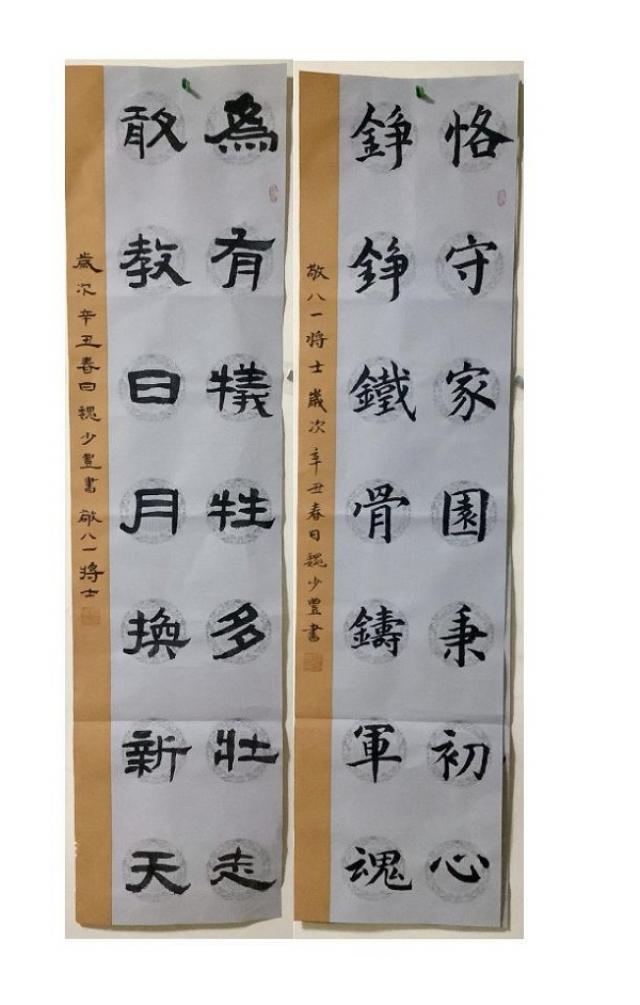 恪守家園秉初心
錚錚鐵骨鑄軍魂
敬八一将士歲次辛丑春日魏少豐書
為有犧牲多壯志
敢教日月換新天
歲次辛丑春日魏少豐書敬八一将士